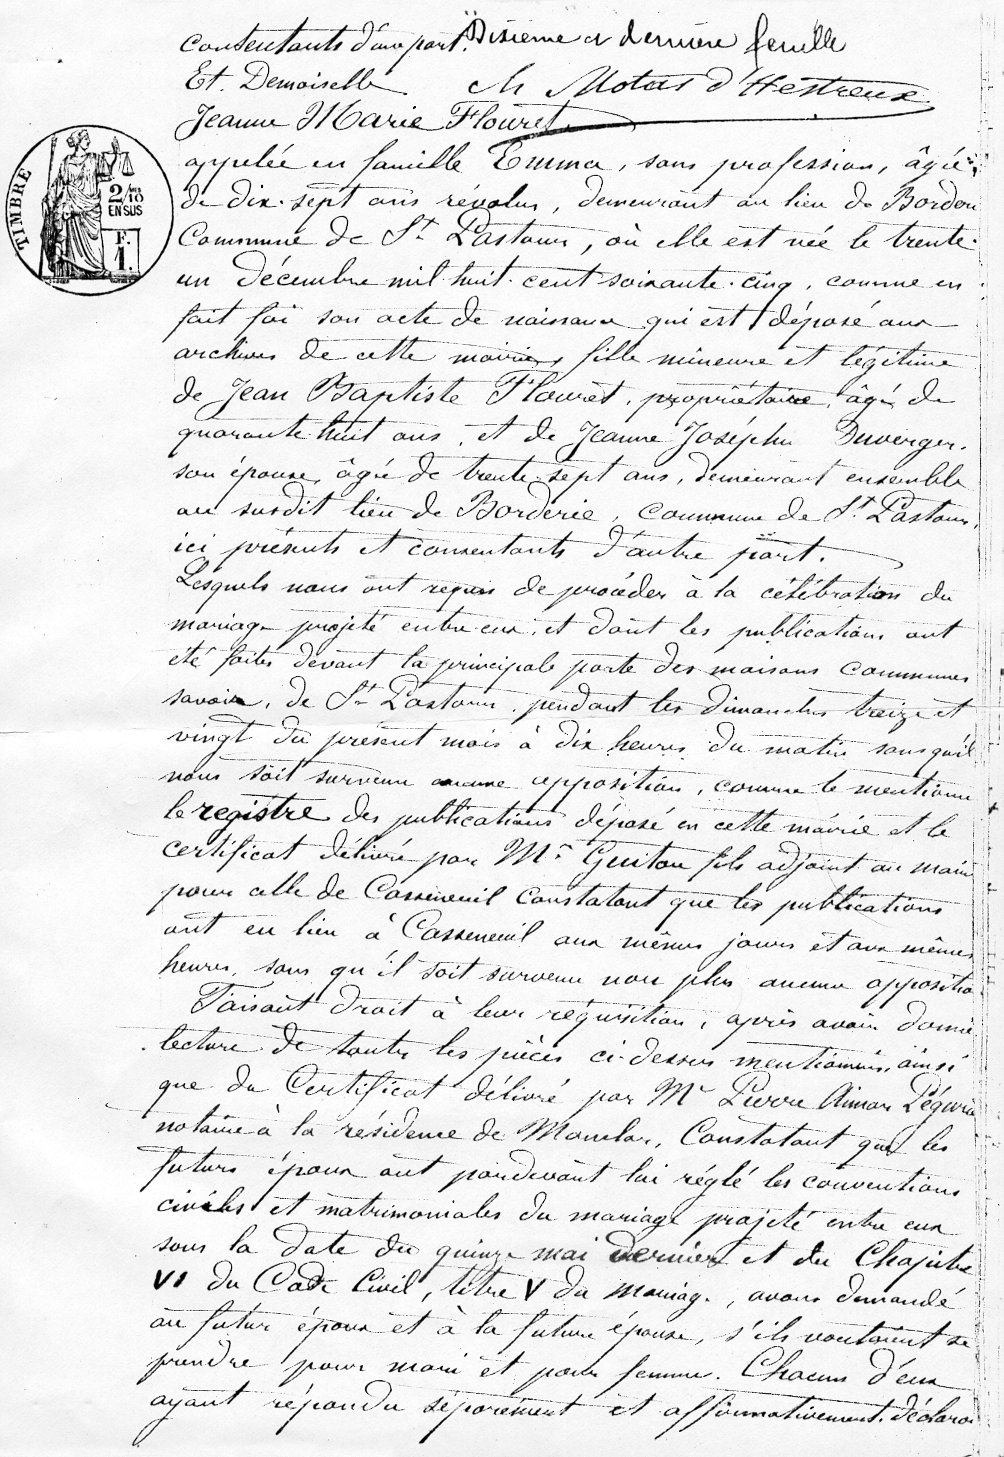 consentants d'une part. Dixième et dernière feuille
Et. Demoiselle Ch Motas d'Hestreux
Jeanne Marie Flouret
appelée en famille Emma, sans profession, âgée
TIMBRE
2/10
EN SUS
F.
1.
de dix-sept ans révolus, demeurant au lieu de Borderie
Commune de St Pastour, où elle est née le trente-
un décembre mil huit-cent soixante-cinq, comme en
fait foi son acte de naissance qui est déposé aux
archives de cette mairie, fille mineure et légitime
de Jean Baptiste Flouret, propriétaire, âgé de
quarante huit ans, et de Jeanne Joséphe Duverger,
son épouse, âgée de trente-sept ans, demeurant ensemble
au susdit lieu de Borderie, commune de St Pastour,
ici présents et consentants d'autre part.
Lesquels nous ont requis de procéder à la célébration du
mariage projeté entre eux, et dont les publications ont
été faites devant la principale porte des maisons communes
savoir, de St Pastour, pendant les dimanches treize et
vingt du présent mois à dix heures du matin sans qu'il
nous soit survenu aucune opposition, comme le mentionne
le registre des publications déposé en cette mairie et le
certificat délivré par Mr Guitou fils adjoint au maire
pour celle de Casseneuil constatant que les publications
ont eu lieu à Casseneuil aux mêmes jours et aux mêmes
heures, sans qu'il soit survenu non plus aucune oppositio
Faisant droit à leur réquisition, après avoir donné
lecture de toutes les pièces ci-dessus mentionnées, ainsi
que du Certificat délivré par Mr Pierre Aimar
notaire à la résidence de Monclar, Constatant que les
futurs époux ont pardevant lui réglé les conventions
civiles et matrimoniales du mariage projeté entre eux
sous la date du quinze mai dernier et du Chapitre
VI du Code Civil, titre V du mariage, avons demandé
au futur époux et à la future épouse, s'ils voulaient se
prendre pour mari et pour femme. Chacun d'eux
ayant répondu séparément et affirmativement, déclaro